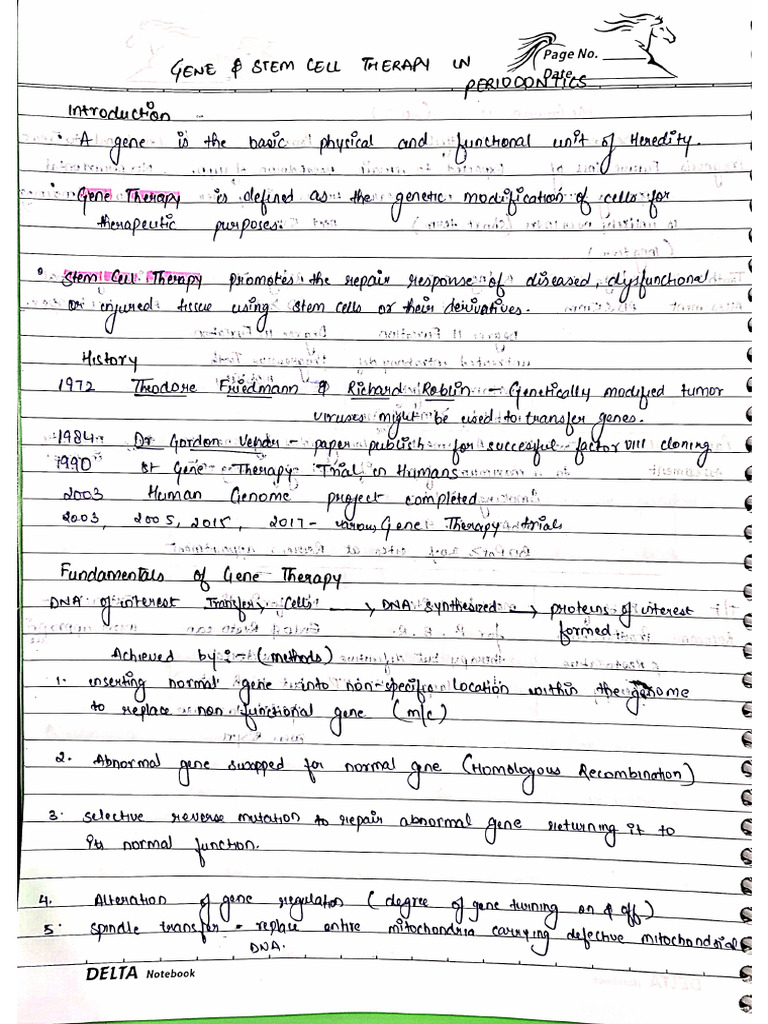 Page No.
Date
GENE & STEM CELL THERAPY IN
PERIODONTICS
Introduction
• A gene is the basic physical and functional unit of Heredity.
Gene Therapy is defined as the genetic modification of cells for
therapeutic purposes.
• Stem Cell Therapy promotes the repair response of diseased, dysfunctional
or injured tissue using stem cells or their derivatives.
History
1972 Theodore Friedmann & Richard Roblin - Genetically modified tumor
viruses might be used to transfer genes.
1984 Dr Gordon - paper publish for successful factor VIII cloning
1990 1st Gene Therapy Trial in Humans
2003 Human Genome project completed
2003, 2005, 2015, 2017 - various Gene Therapy trials
Fundamentals of Gene Therapy
DNA of interest Transfer → Cells → DNA synthesized → proteins of interest
formed
Achieved by :- (methods)
1. inserting normal gene into non-specific location within the genome
to replace non functional gene (m/c)
2. Abnormal gene swapped for normal gne (Homologous Recombination)
3. selective reverse mutation to repair abnormal gene returning it to
its normal function.
4. Alteration of gene regulation (degree of gene turning on & off)
5. spindle transfer - replace entire mitochondria carrying defective mitochondrial
DNA.
DELTA Notebook